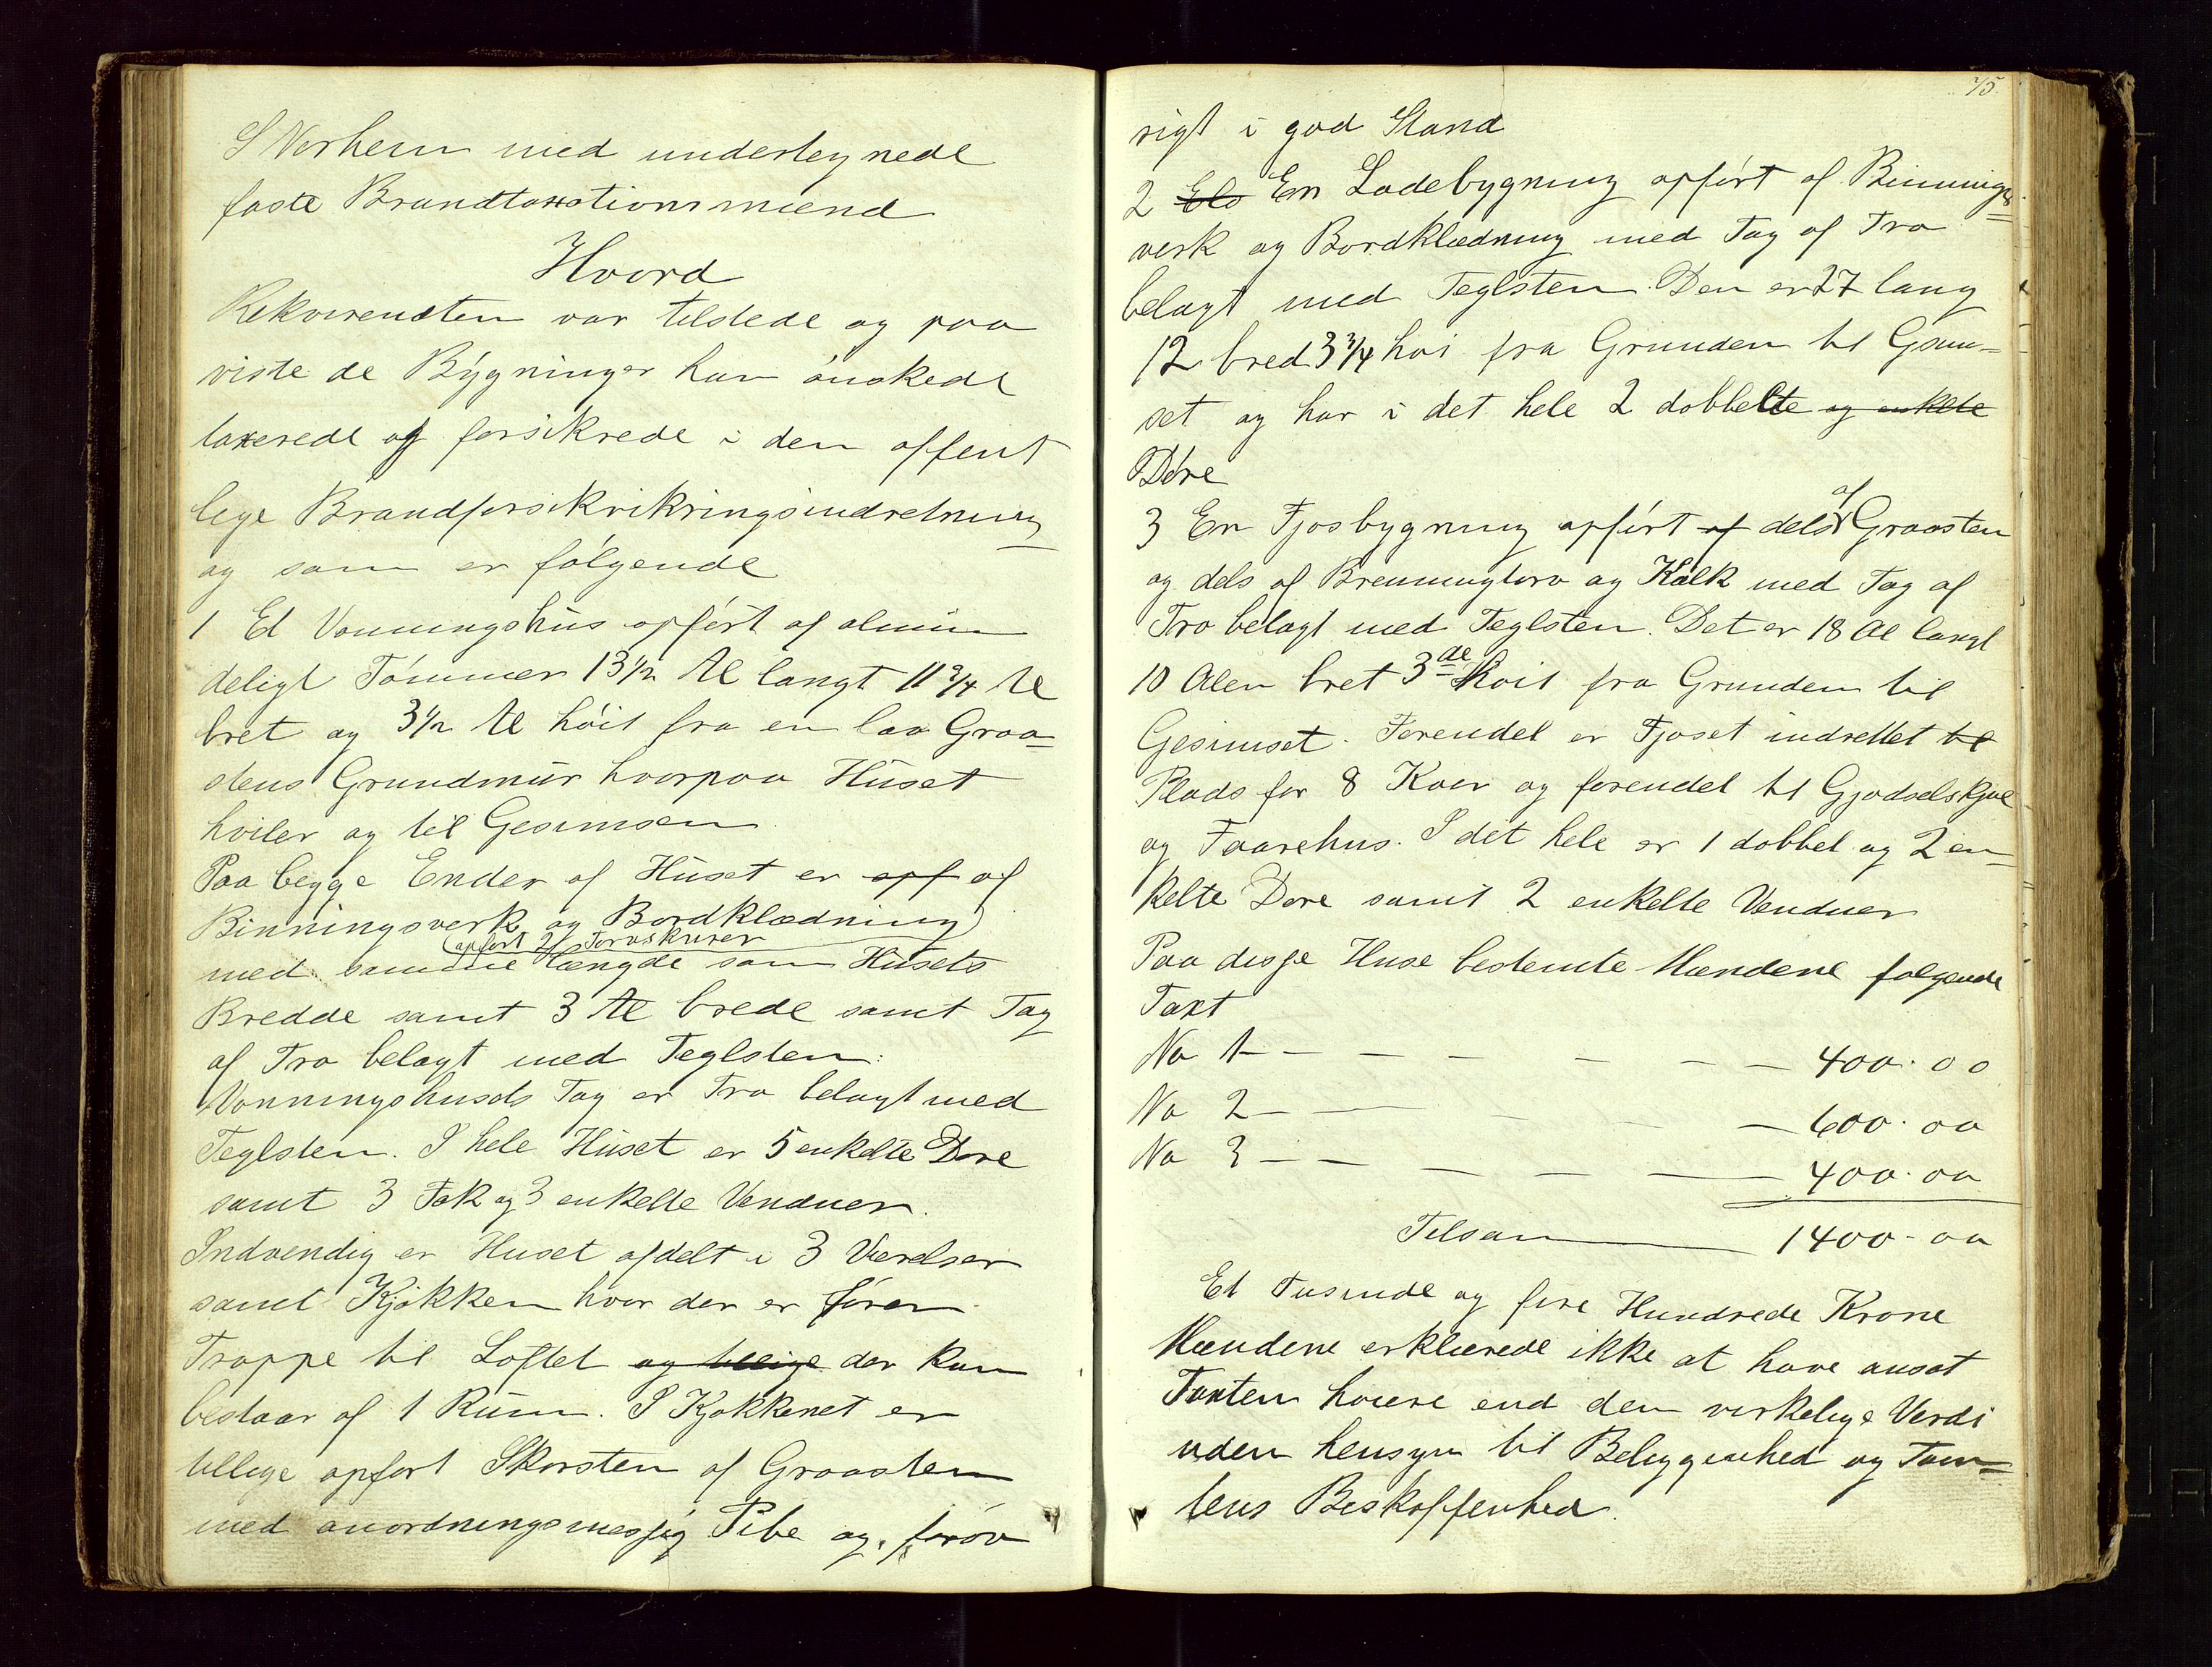 S Nerhem med undertegnede
faste Brandtaxstionsmænd
Hvord
Rekvirendten var tilstede og paa
viste de Bygninger han ønskede
taxerede og forsikrede i den offent
lige Brandforsikrikringsindretning
og som er følgende
1 Et Vonningshus opført af almin
deligt Tømmer 13 1/2 Al langt 11 3/4 Al
bret og 3 1/2 Al høit fra en lav Graa=
stens Grundmur hvorpaa Huset
hviler og til Gesimsen
Paa begge Ender af Huset er opf af
Binningsverk og Bordklædning
(opført 2 Torvskurer
med samme længde som Husets
Bredde samt 3 Al brede samt Tag
af Tro belagt med Teglsten.
Vonningshusets Tag er Tro belagt med
Teglsten. I hele Huset er 5 enkelte Døre
samt 3 Fak og 3 enkelte Venduer.
Indvendig er Huset afdelt i 3 Værelser
samt Kjøkken hvor der er foren
Trappe til Loftet og der kun
bestaar af 1 Rum. I Kjøkkenet er
tillige opført Skorsten af Graasten
med anordningsmessig Pibe og forøv
75
rigt i god Stand
2 En Ladebygning opført af Binnings=
verk og Bordklædning med Tag af Tro
belagt med Teglsten. Den er 27 lang
12 bred 3 3/4 høi fra Grunden til Gsim=
set og har i det hele 2 dobbelte og enkelte
Døre
3 En Fjosbygning opført af dels af Graasten
og dels af Brenningtorv og Kalk med Tag af
Tro belagt med Teglsten. Det er 18 Al langt
10 Alen bret 3de høit fra Grunden til
Gesimset. Forendel er Fjoset indrettet til
Plads for 8 Køer og forendel til Gjødselskjæl
og Faarehus. I det hele er 1 dobbel og 2 en=
kelte Døre samt 2 enkelte Venduer
Paa disse Huse bestemte Mændene følgende
Taxt
No 1 - - - - - - - 400.00
No 2 - - - - - 600.00
No 3 - - - - - 400.00
Tilsam 1400-00
Et Tusinde og fire Hundrede Krone
Mændene erklærede ikke at have ansat
Taxten høiere end den virkelige Verdi
uden hensyn til Beliggenhed og Tom=
tens Beskaffenhed.